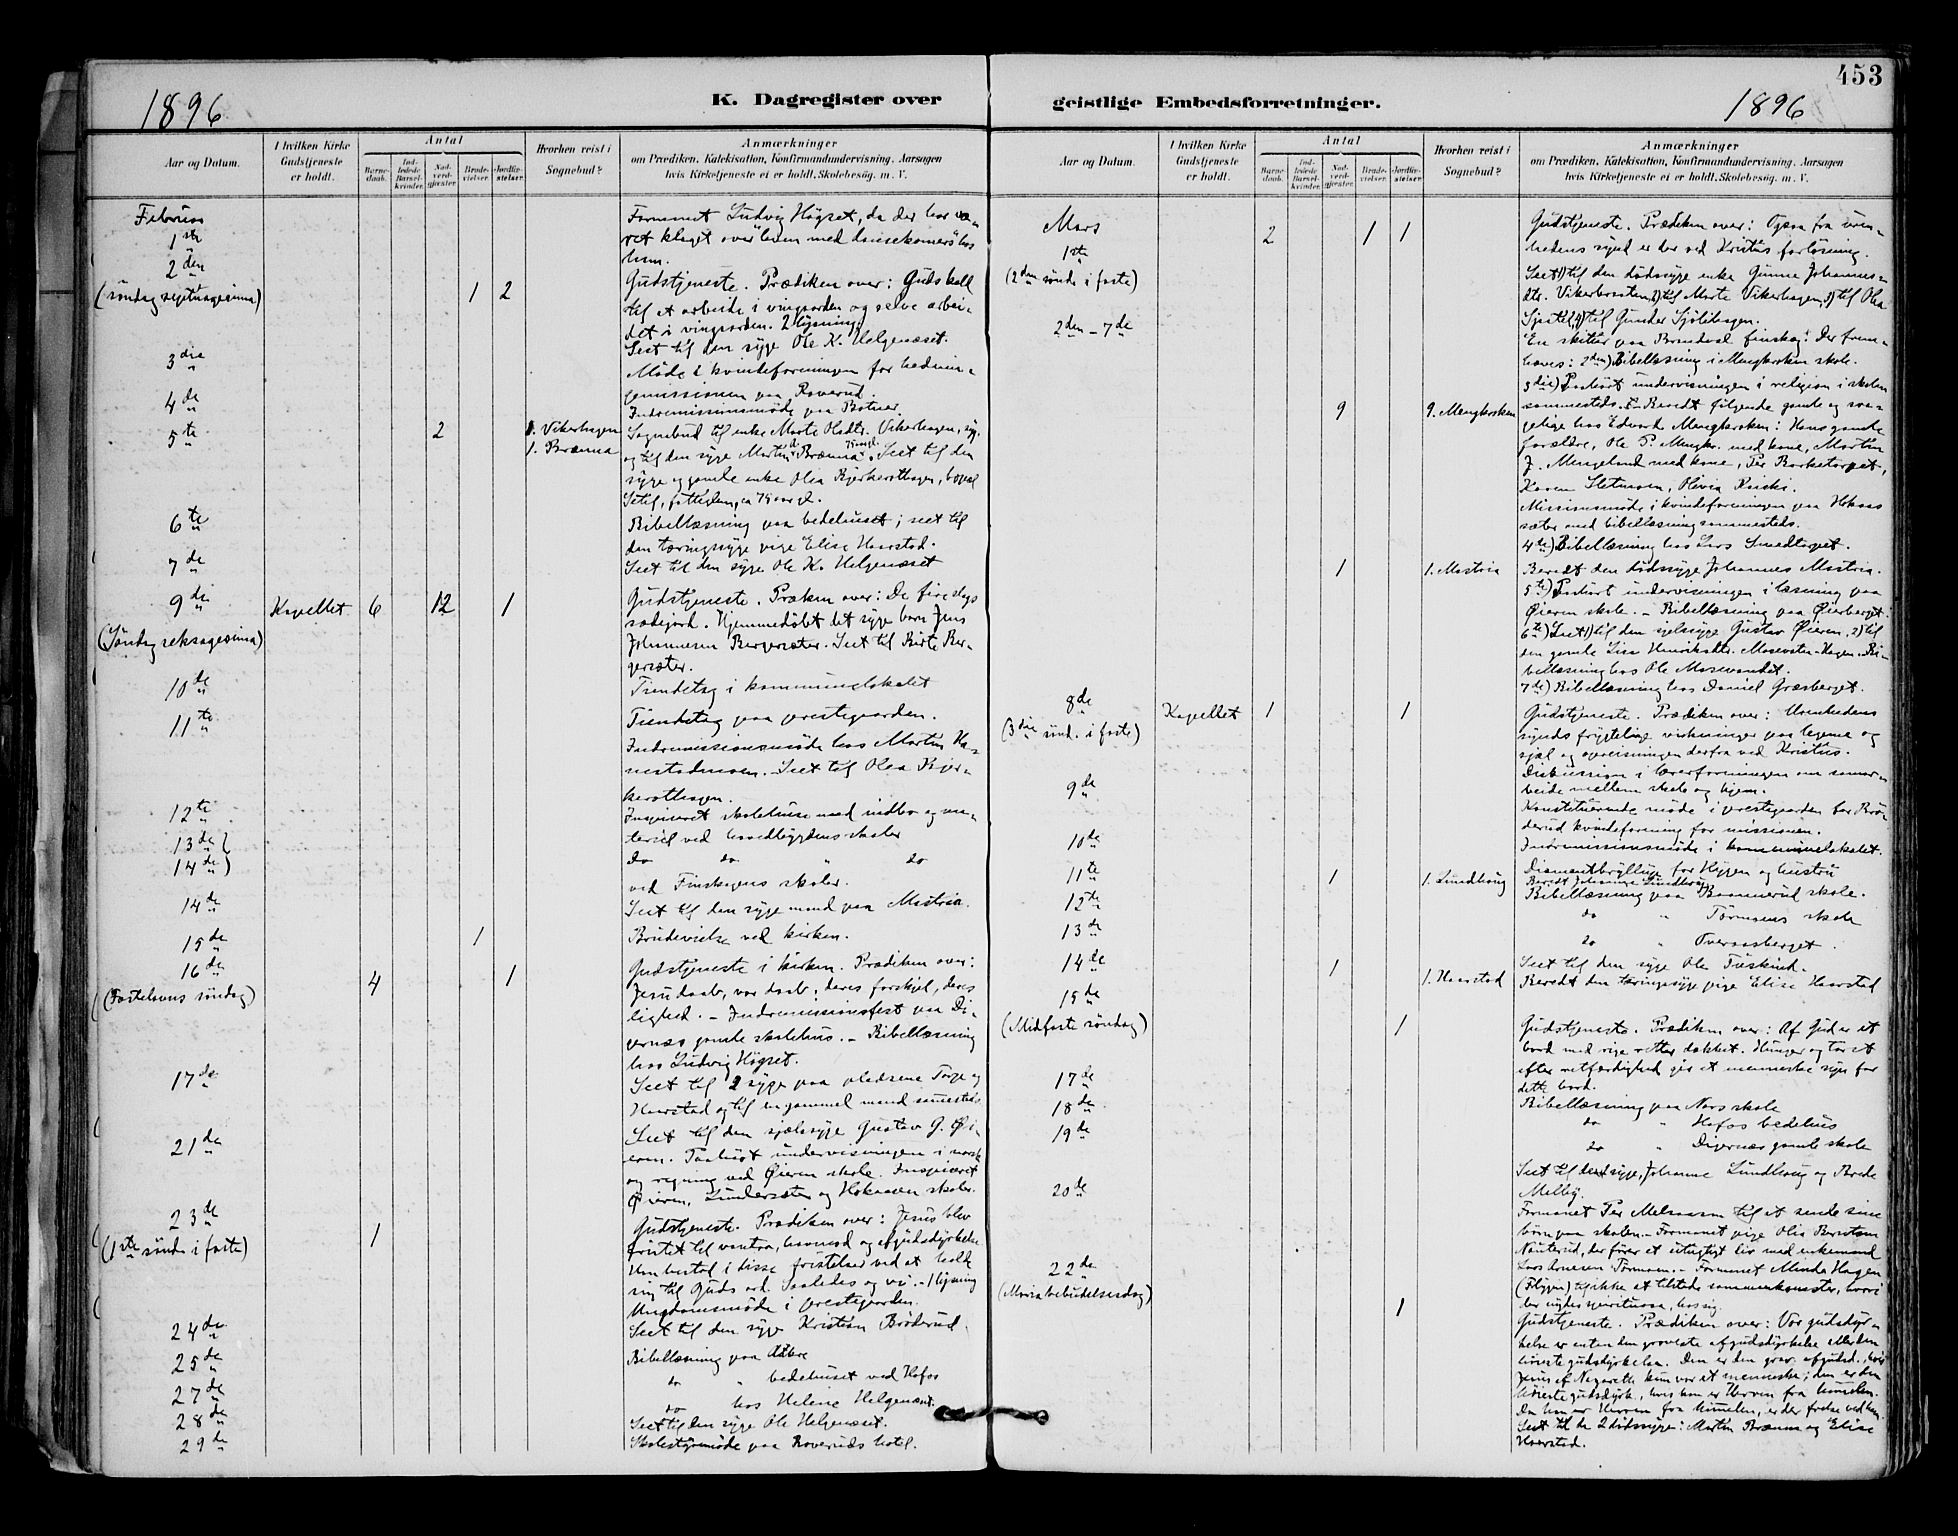 453
1896
K. Dagregister over
geistlige Embedsforretninger.
1896
Aar og Datum.
I hvilken Kirke Gudstjeneste er holdt.
Antal
Barne-daab.
Ind-ledede Barsel-kvinder.
Nad-verd-gjæster.
Brude-vielser.
Jordfæ-stelser.
Hvorhen reist i Sognebud?
Anmærkninger
om Prædiken, Katekisation, Konfirmandundervisning, Aarsagen
hvis Kirketjeneste ei er holdt, Skolebesøg, m. V.
Februar
1ste
Formanet Ludvig Högset, da der har væ-
ret klaget over leven med dansekomers hos
ham.
2den
(söndag septuagesima)
1 2
Gudstjeneste. Prædiken over: Guds kall
til at arbeide i vingaarden og selve arbei-
det i vingaarden. 2 lysning.
3die
Seet til den syge Ole K. Helgenæset.
4de
Möde i kvindeforeningen for hednin-
gemissionen paa Roverud.
Indremissionsmöde paa Botner.
5te
2
1. Vikerhagen
1. Brænna
Sognebud til enke Marte Olsdtr. Vikerhagen, syg,
og til den syge Martin Brænna. Seet til den
syge og gamle enke Olea Bjerkerothagen,
6te
Bibellæsning paa bedehuset; seet til
den tæringssyge pige Elise Haarstad.
7de
Seet til den syge Ole K. Helgenæset
9de
(Söndag seksagesima)
Kapellet
6 12 1
Gudstjeneste. Præken over: De fireslags
sædejord. Hjemmedöbt det syge barn Jens
Johannesen Bergersæter. Seet til Birte Ber-
gersæter.
10de
Tiendetag i kommunelokalet
11te
Tiendetag paa prestegaarden.
Indremissionsmöde hos Martin Ha-
nestadmoen. Seet til Olea Bjer-
kerothagen.
12te
13de
Inspiceret skolehuse med indbo og ma-
teriel ved hovedbygdens skoler
14de
do do " do
ved Finskogens skoler.
14de
Seet til den syge mand paa Mastria.
15de
1
Brudevielse ved kirken.
16de
(Fastelavns söndag)
4 1
Gudstjeneste i kirken. Prædiken over:
Jesu daab, vor daab, deres forskjel, deres
lighed. - Indremissionsfest paa Di-
gernæs gamle skolehus. - Bibellæsning
hos Ludvig Högset.
17de
Seet til 2 syge paa pladsene Torge og
Haarstad og til en gammel mand sammesteds
21de
Seet til den sjælesyge Gustav G. Öi-
eren. Paahört undervisningen i norsk
og regning ved Öieren skole. Inspiceret
Öieren, Lundersæter og Hokaasen skoler.
23de
(1ste sönd. i faste)
1
Gudstjeneste. Prædiken over: Jesus blev
fristet til vantro, hovmod og afgudsdyrkelse.
Han bestod i disse fristelser ved at holde
sig til Guds ord. Saaledes og vi. - 1 lysning
Ungdomsmöde i prestegaarden.
24de
Seet til den syge Kristian Bröderud.
25de
Bibellæsning paa Aabre
27de
do " bedehuset ved Hofos
28de
do hos Helene Helgenæset.
Seet til den syge Ole Helgenæset.
29de
Skolestyremöde paa Roveruds hotel.
Aar og Datum.
I hvilken Kirke Gudstjeneste er holdt.
Antal
Barne-daab.
Ind-ledede Barsel-kvinder.
Nad-verd-gjæster.
Brude-vielser.
Jordfæ-stelser.
Hvorhen reist i Sognebud?
Anmærkninger
om Prædiken, Katekisation, Konfirmandundervisning, Aarsagen
hvis Kirketjeneste ei er holdt, Skolebesøg, m. V.
Mars
1ste
(2den sönd. i faste)
2 1 1
Gudstjeneste. Prædiken over: Ogsaa fra uren-
hedens synd er der ved Kristus forlösning.
Seet 1) til den dödssyge enke Gunnor Johannes-
dtr. Vikerbraaten, 2) til Marte Vikerhagen, 3) til Olea
4) til Gunder Sjölihagen.
2den - 7de
En skitur paa Brandval finskog: Der frem-
hæves: 2den) Bibellæsning i Mengkroken skole.
3die) Paahört undervisningen i religion i skolen
9
9. Mengkroken
sammesteds. Beredt fölgende gamle og sva-
gelige hos Edvard Mengkroken: Hans gamle
forældre, Ole P. Mengkr. med kone, Martin
J. Mengeland med kone, Per Barketorpet,
Karen Sletmoen, Olivia
Missionsmöde i kvindeforeningen paa Hokaas-
sæter med bibellæsning sammesteds.
4de) Bibellæsning hos Lars Smedtorpet.
1
1. Mastria
Beredt den dödssyge Johannes Mastria.
5te) Paahört undervisningen i læsning paa
Öieren skole. - Bibellæsning paa Öierberget.
6te) Seet 1) til den sjælesyge Gustav Öieren, 2) til
den gamle Lisa Henriksdtr. Masevatn-Hagen. Bi-
bellæsning hos Ole Masevandet.
7de) Bibellæsning hos Daniel Græsberget.
8de
(3die sönd. i faste)
Kapellet
1 1
Gudstjeneste. Prædiken over: Urenhedens
synds frygtelige virkninger paa legeme og
sjæl og opreisningen derfra ved Kristus.
9de
Diskussion i lærerforeningen om samar-
beide mellem skole og hjem.
Konstituerende möde i prestegaarden for Brö-
derud kvindeforening for missionen.
10de
Indremissionsmöde i kommunelokalet.
11te
1
1. Lundhaug
Diamantbryllup for Hyggen og hustru
Beredt Johanne Lundhaug
12te
Bibellæsning paa Brannerud skole.
13de
do " Tormoens skole
do " Tversaasberget.
14de
Seet til den syge Ole Tuskind.
1
1. Haarstad
Beredt den tæringssyge pige Elise Haarstad
15de
(Midfaste söndag)
1
Gudstjeneste. Prædiken over: Af Gud er et
bord med rige retter dækket. Hunger og törst
efter retfærdighed gir et menneske syn for
dette bord.
17de
Bibellæsning paa Nors skole
18de
do " Hofos bedehus
19de
do " Digernæs gamle skole
Seet til de syge, Johanne Lundhaug og Brede
Melby.
20de
Formanet Per Melaasen til at sende sine
börn paa skolen. - Formanet pige Olia Berntsen
Nauterud, der förer et utugtigt liv med enkemand
Lars Tormoen. - Formanet Minda Hagen
(Flygen) til ikke at tilstede sammenkomster, hvori
der nydes spirituosa, hos sig.
22de
(Maria bebudelsesdag)
1
Gudstjeneste. Prædiken over: Vor gudsdyr-
kelse er enten den groveste afgudsdyrkelse eller den
höieste gudsdyrkelse. Den er den grov. afgudsd., hvis
Jesus af Nazareth kun var et menneske; den er den
höieste gudsdyrk., hvis han er Herren fra himelen.
Da han er Herren fra himelen, er der frelse ved ham.
Seet til de 2 dödssyge: Martin Brænna og Elise
Haarstad.